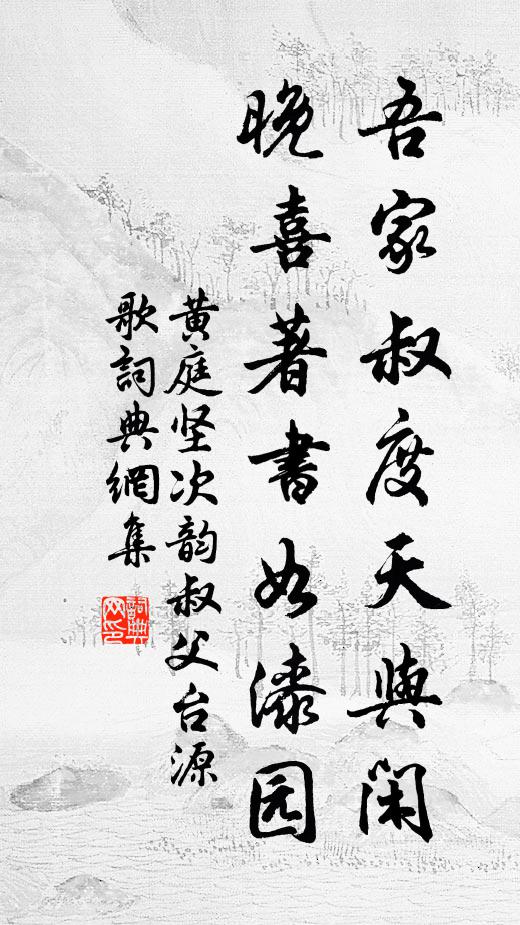 吾家叔度天與閑
晚喜著書如漆园
黄庭坚次韵叔父台源
歌詞典網集
詞典网印